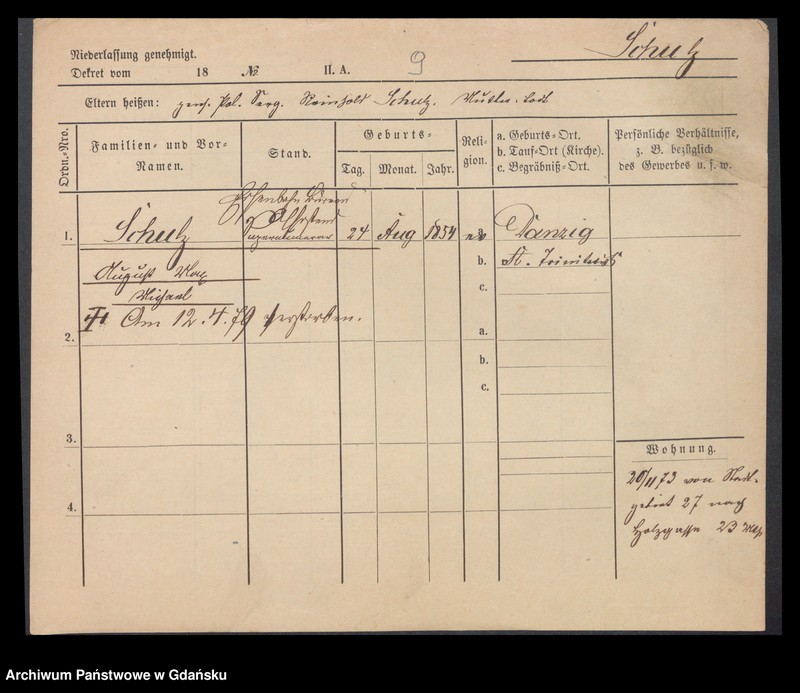 Schulz
Niederlassung genehmigt.
Dekret vom 18 № II. A. 9
Eltern heißen: pens. Pol. Serg. Reinhold Schulz. Mutter todt
Ordn.-Nro.
Familien- und Vor-
Namen.
Stand.
Geburts-
Tag. Monat. Jahr.
Reli-
gion.
a. Geburts-Ort.
b. Tauf-Ort (Kirche).
c. Begräbniß-Ort.
Persönliche Verhältnisse,
z. B. bezüglich
des Gewerbes u. s. w.
Eisenbahn Bureau
1. Schulz 24 Aug 1854 ev a. Danzig
August Max b. St. Trinitatis
Michael c.
Am 12.4.79 verstorben.
2. a.
b.
c.
3.
4.
Wohnung.
20/11 73 von Stadt-
gebiet 27 nach
Holzgasse 23
Archiwum Państwowe w Gdańsku